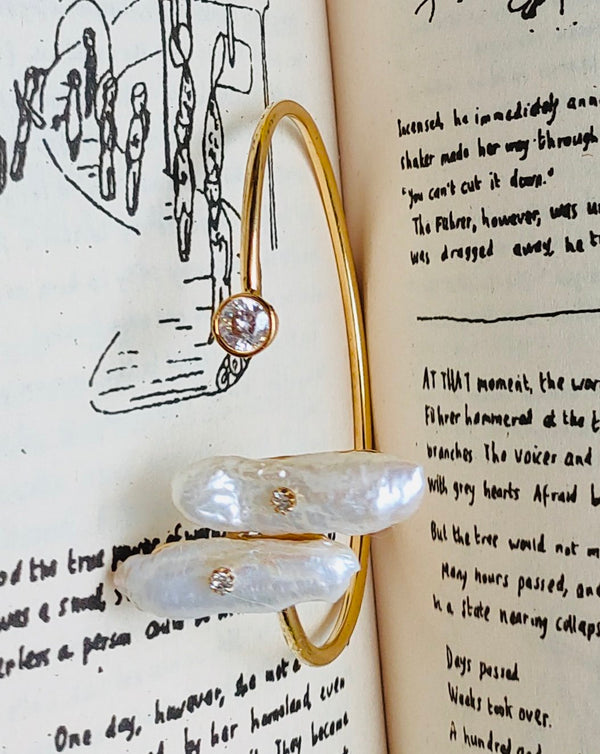 od the true power of
was a small,
erless a person could
One day, however, she met a
by her homeland, even
They became
Incensed, he immediately ann
shaker made her way through
"You can't cut it down."
The Führer, however, was u
was dragged away, he t
AT THAT moment, the wor
Führer hammered at the t
branches. The voices and
with grey hearts. Afraid b
But the tree would not m
Many hours passed, and
in a state nearing collaps
Days passed
Weeks took over.
A hundred and